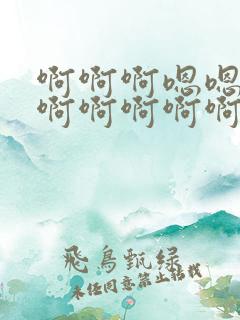 啊啊啊嗯嗯
啊啊啊啊啊
飛鳥甄綠
未经同意禁止转载